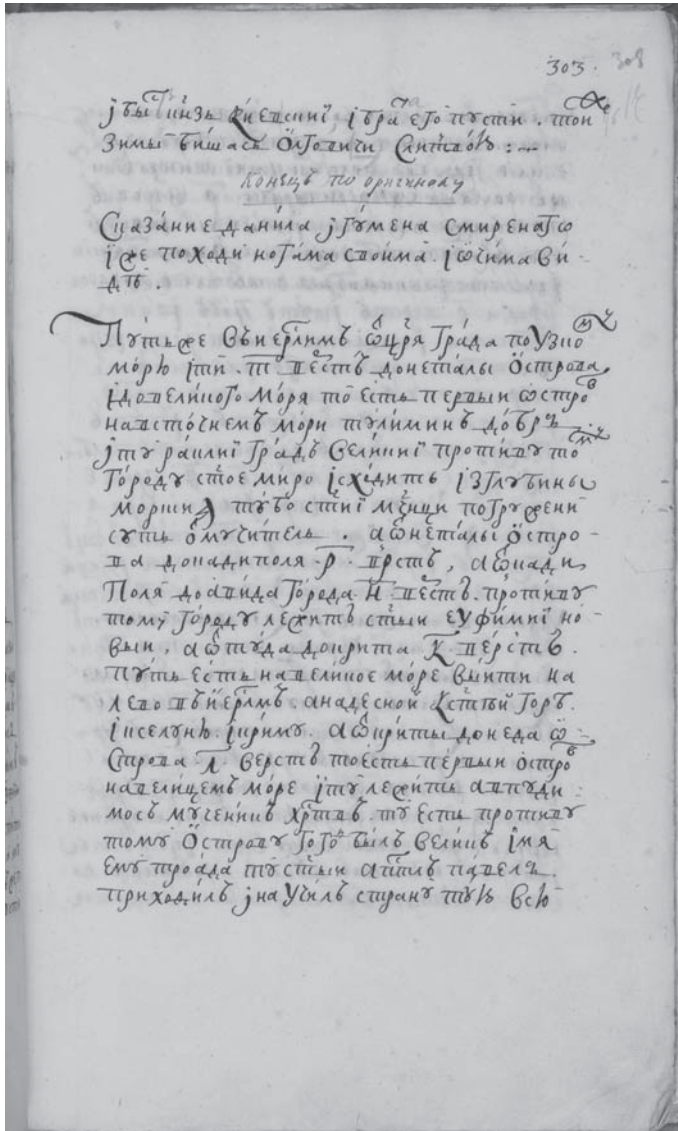 303. 308
ј бы̑ кнѕь киевскиї ї бра̑ его пусти. тои же
зимы бишась ѻлговичи слитвою :~
Конецъ по оригиналу
Сказание данила јгумена смиренагѡ
їже походи ногама своима. їѡчима ви-
дѣ.
Путь же въиерⷭ҇лимъ ѿцр҃я града поузкоⷨ҇у
морю їти. т҃ веⷭ҇стъ донеталы ѻстрова,
їдовеликого моря то есть первыи ѡстроⷡ
навсточнемъ мори тулиминъ добръ.
јту раклиї градъ великиї противу тоⷨу
городу ст҃ое миро їсходить ізглубины
морския тубо ст҃иї мч҃нци погружени
суть ѿмучитель. аѿнеталы ѻстро-
ва донадиполя .р҃. верстъ, аѿкади
Поля доавида города .н҃. веⷭ҇стъ. противу
тому городу лежитъ ст҃ыи еуфимиї но-
выи, аѿтуда докрита к҃ верстъ.
путь есть навеликое море выити на
лево въиерⷭ҇лимъ. анадесной кст҃ѣй горѣ.
їкселуню їкриму. аѿкриты донеда ѡ-
Строва .л҃. верстъ тоесть первыи ѻстроⷡ
навелицемъ море їту лежить автуди-
мосъ мученикъ хрⷭ҇товъ. ту есть противу
тому ѻстрову го былъ великъ їмя
ему троада ту ст҃ыи апⷭ҇лъ павелъ.
приходилъ јнаучилъ страну тую всю